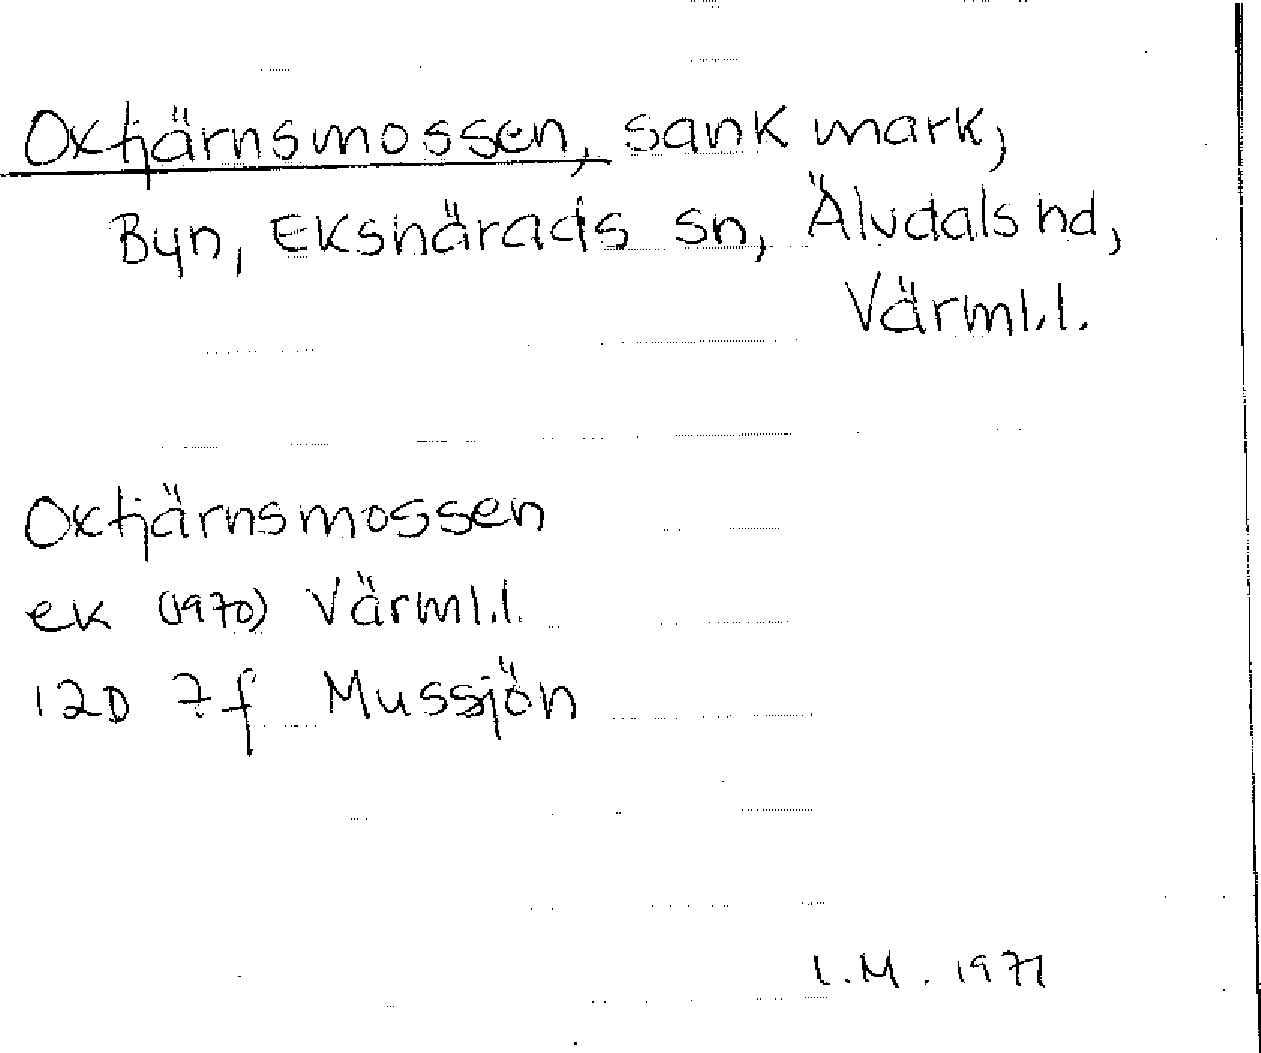 Oxtjärnsmossen, sank mark,
Byn, Ekshärads sn, Älvdals hd,
Värml.l.
Oxtjärnsmossen
ek (1970) Värml.l.
12D 7f Mussjön
I.M. 1971